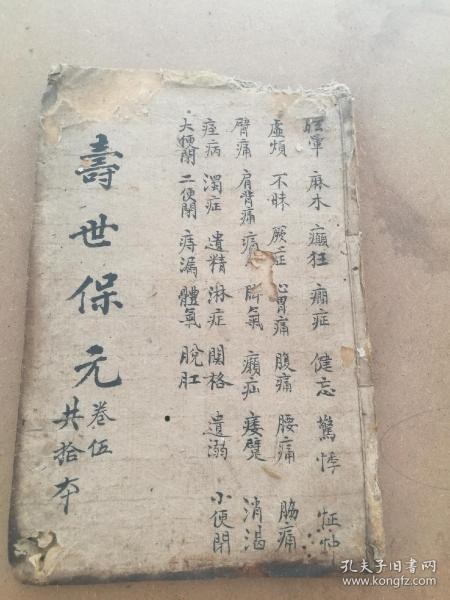 眩暈 麻木 癲狂 癇症 健忘 驚悸 怔忡
虛煩 不眛 厥症 心胃痛 腹痛 腰痛 脇痛
臂痛 肩背痛 痛 脚氣 癩疝 痿躄 消渴
痓病 濁症 遺精 淋症 関格 遺溺 小便閉
大便閉 二便閉 痔漏 體氣 脫肛
壽世保元
卷伍
共拾本
孔夫子旧书网
www.kongfz.com